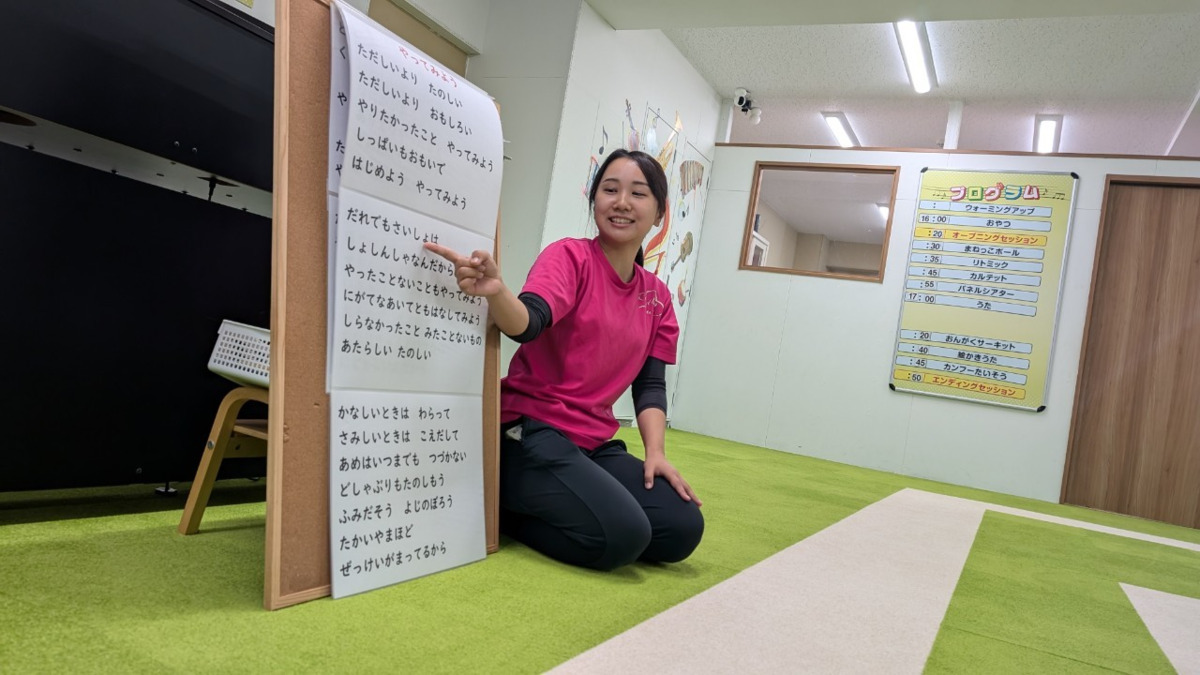 やってみよう
ただしいより　たのしい
ただしいより　おもしろい
やりたかったこと　やってみよう
しっぱいもおもいで
はじめよう　やってみよう
だれでもさいしょは
しょしんしゃなんだから
やったことないこともやってみよう
にがてなあいてともはなしてみよう
しらなかったこと みたことないもの
あたらしい たのしい
かなしいときは　わらって
さみしいときは　こえだして
あめはいつまでも　つづかない
どしゃぶりもたのしもう
ふみだそう　よじのぼろう
たかいやまほど
ぜっけいがまってるから
プログラム
: ウォーミングアップ
16:00 おやつ
:20 オープニングセッション
:30 まねっこボール
:35 リトミック
:45 カルテット
:55 パネルシアター
17:00 うた
:20 おんがくサーキット
:40 絵かきうた
:45 カンフーたいそう
:50 エンディングセッション